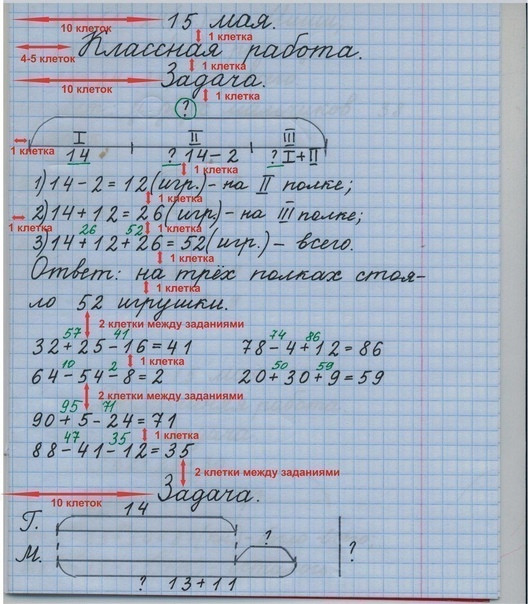 10 клеток 15 мая.
1 клетка
4-5 клеток Классная работа.
1 клетка
10 клеток Задача.
1 клетка
?
I II III
1 клетка 14 ? 14-2 ? I+II
1 клетка
1) 14-2=12 (игр.)- на II полке;
1 клетка
2) 14+12=26 (игр.)- на III полке;
1 клетка 26 52 1 клетка
3) 14+12+26=52 (игр.)- всего.
1 клетка
Ответ: на трёх полках стоя-
1 клетка
ло 52 игрушки.
2 клетки между заданиями
57 41 74 86
32+25-16=41 78-4+12=86
1 клетка
10 2 50 59
64-54-8=2 20+30+9=59
2 клетки между заданиями
95 71
90+5-24=71
1 клетка
47 35
88-41-12=35
2 клетки между заданиями
10 клеток Задача.
14
Г.
?
М. ?
? 13+11